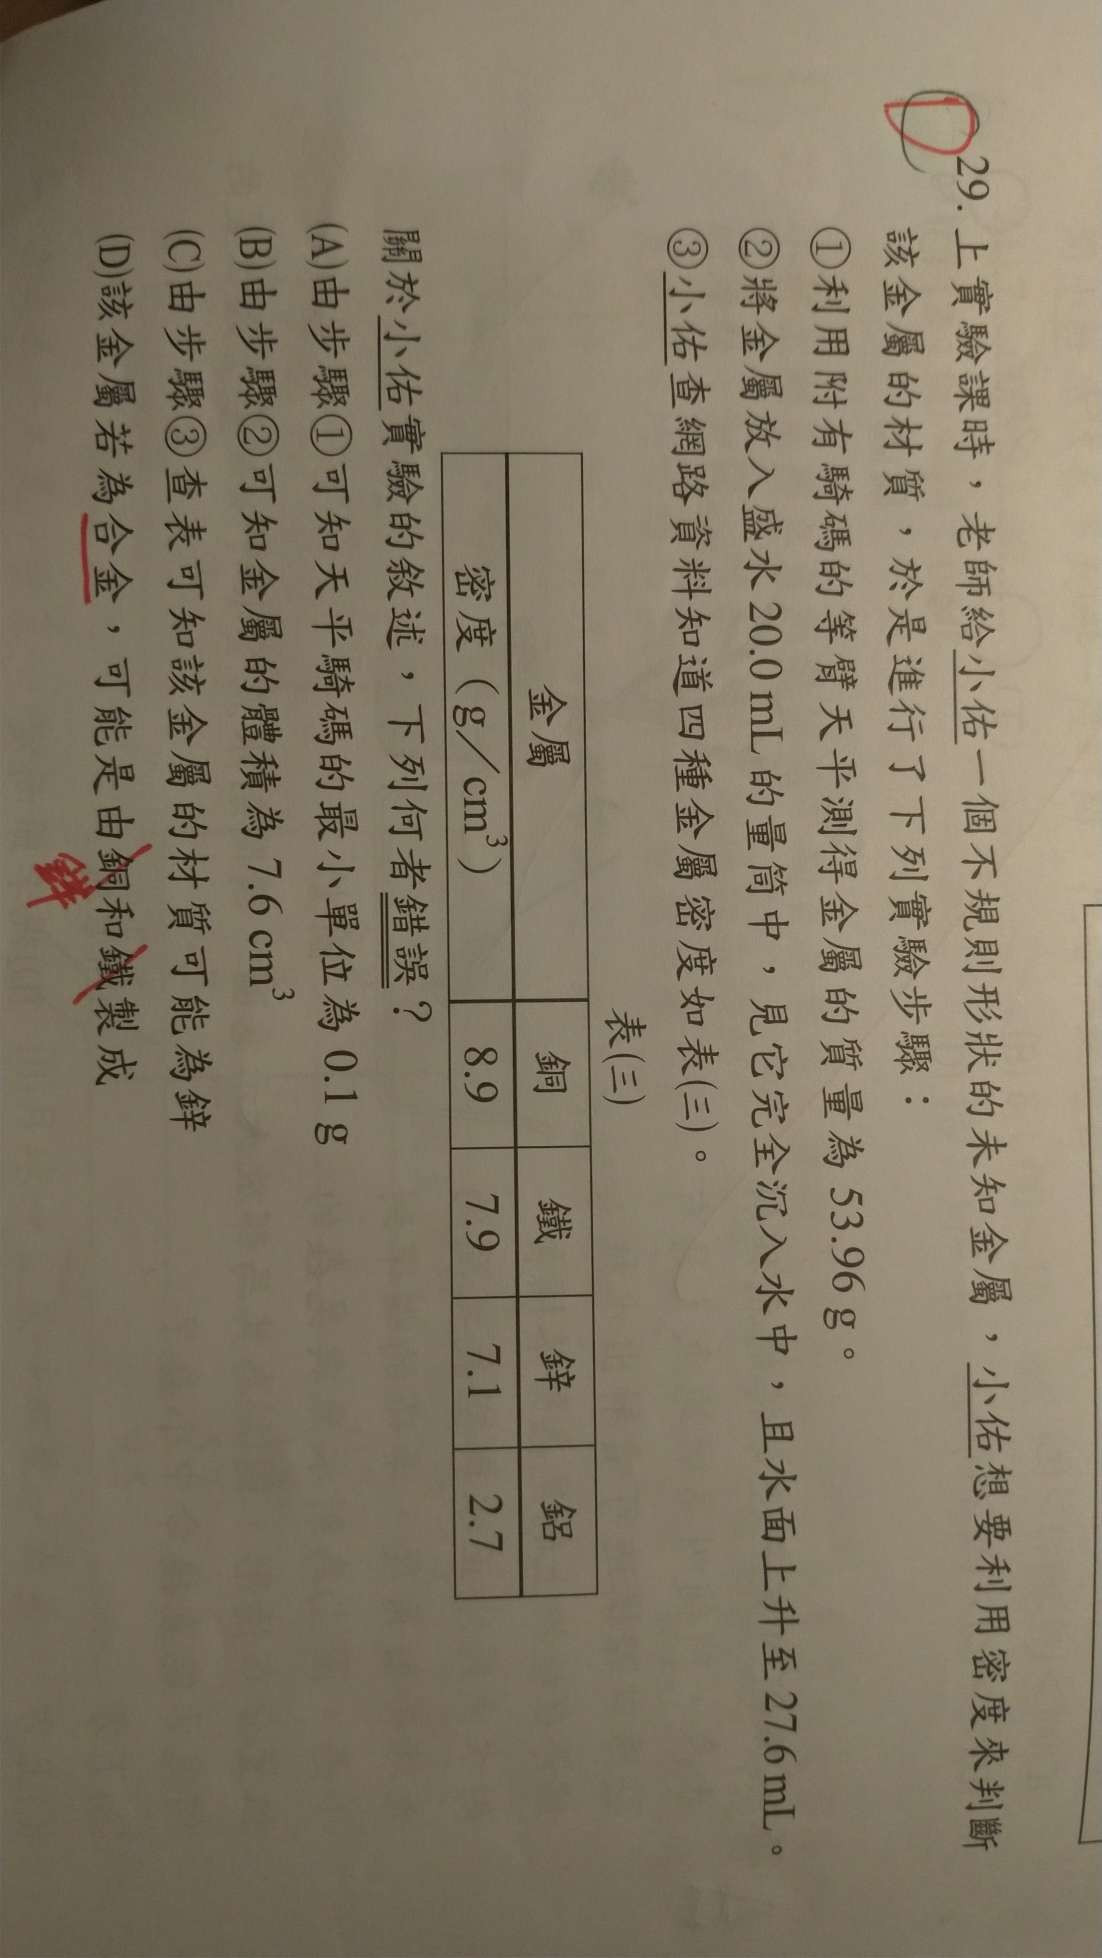 D
29. 上實驗課時，老師給小佑一個不規則形狀的未知金屬，小佑想要利用密度來判斷
該金屬的材質，於是進行了下列實驗步驟：
①利用附有騎碼的等臂天平測得金屬的質量為 53.96 g。
②將金屬放入盛水 20.0 mL 的量筒中，見它完全沉入水中，且水面上升至 27.6 mL。
③小佑查網路資料知道四種金屬密度如表(三)。
表(三)
金屬 銅 鐵 鋅 鋁
密度（g／cm³） 8.9 7.9 7.1 2.7
關於小佑實驗的敘述，下列何者錯誤？
(A)由步驟①可知天平騎碼的最小單位為 0.1 g
(B)由步驟②可知金屬的體積為 7.6 cm³
(C)由步驟③查表可知該金屬的材質可能為鋅
(D)該金屬若為合金，可能是由銅和鐵製成
鋅